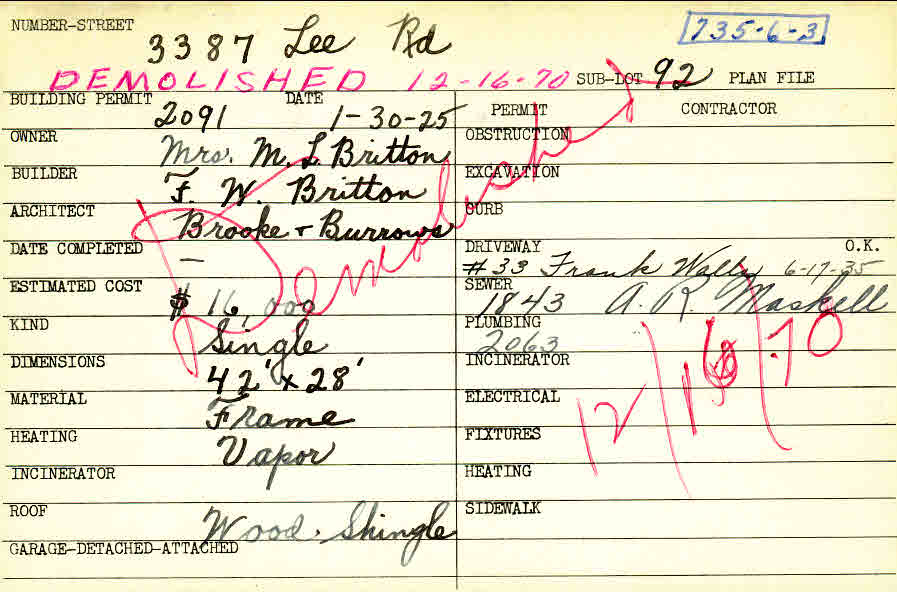 NUMBER-STREET 3387 Lee Rd 735-6-3
DEMOLISHED 12-16-70 SUB-LOT 92 PLAN FILE
BUILDING PERMIT 2091 DATE 1-30-25
OWNER Mrs. M. L. Britton
BUILDER F. W. Britton
ARCHITECT Brooke + Burrows
DATE COMPLETED —
ESTIMATED COST $16,000
KIND Single
DIMENSIONS 42' x 28'
MATERIAL Frame
HEATING Vapor
INCINERATOR
ROOF Wood Shingle
GARAGE-DETACHED-ATTACHED
PERMIT CONTRACTOR
OBSTRUCTION
EXCAVATION
CURB
DRIVEWAY O.K.
#33 Frank Wally 6-17-35
SEWER 1843 A. R. Maskell
PLUMBING
2063
INCINERATOR
ELECTRICAL
FIXTURES
HEATING
SIDEWALK
Demolished
12/16/70